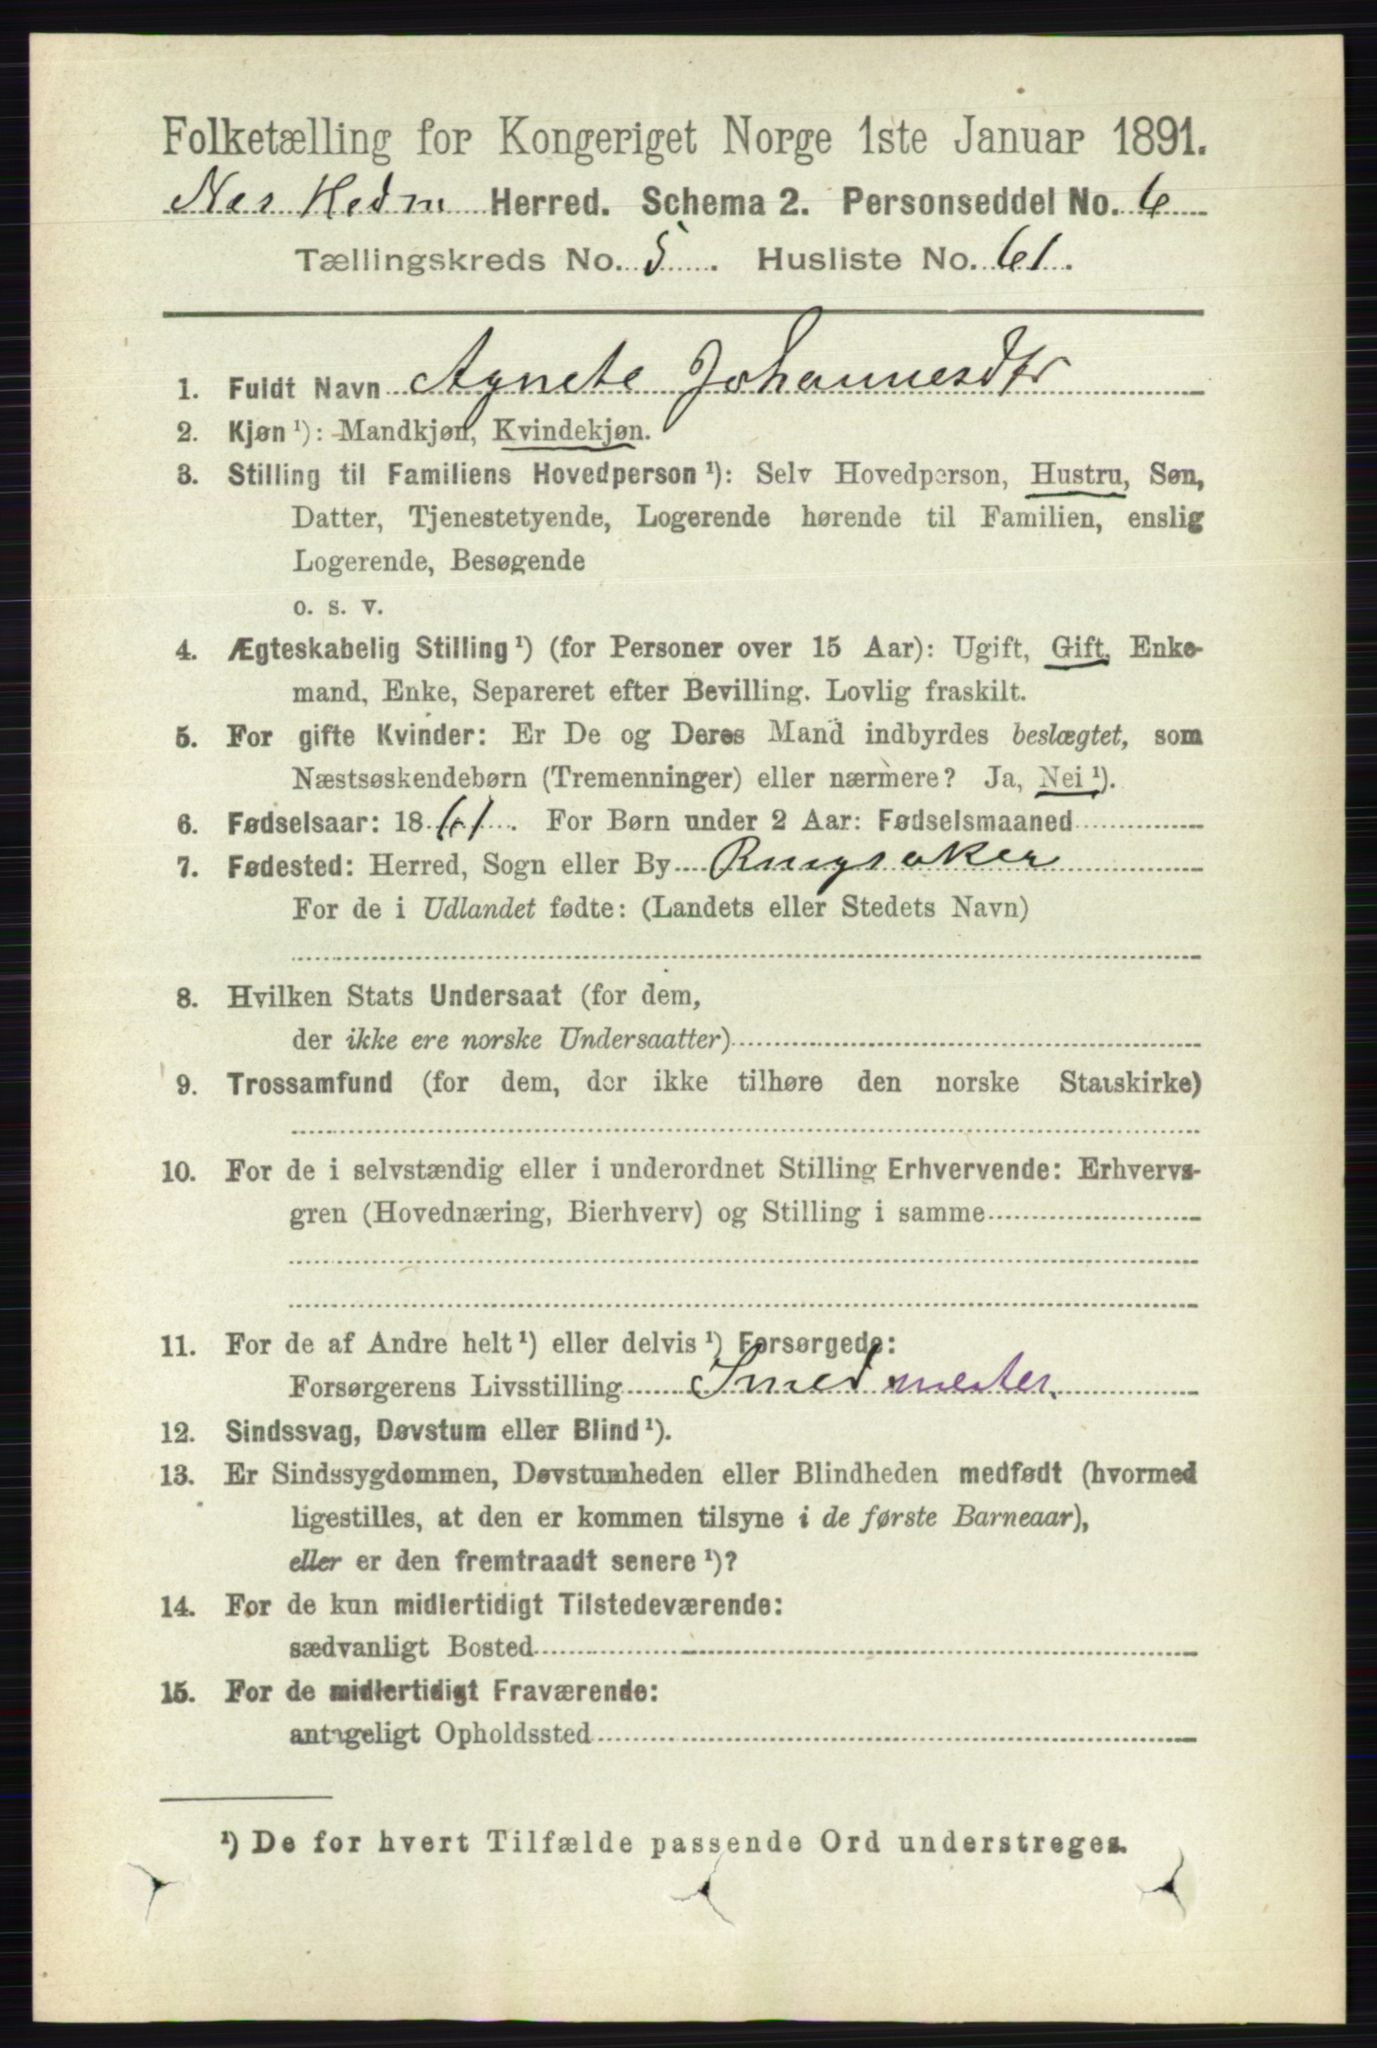 Folketælling for Kongeriget Norge 1ste Januar 1891.
Nes Hedm Herred. Schema 2. Personseddel No. 6
Tællingskreds No. 5. Husliste No. 61.
1. Fuldt Navn Agnete Johannesdtr
2. Kjøn ¹): Mandkjøn, Kvindekjøn.
3. Stilling til Familiens Hovedperson ¹): Selv Hovedperson, Hustru, Søn,
Datter, Tjenestetyende, Logerende hørende til Familien, enslig
Logerende, Besøgende
o. s. v.
4. Ægteskabelig Stilling ¹) (for Personer over 15 Aar): Ugift, Gift, Enke-
mand, Enke, Separeret efter Bevilling. Lovlig fraskilt.
5. For gifte Kvinder: Er De og Deres Mand indbyrdes beslægtet, som
Næstsøskendebørn (Tremenninger) eller nærmere? Ja, Nei ¹).
6. Fødselsaar: 1861. For Børn under 2 Aar: Fødselsmaaned
7. Fødested: Herred, Sogn eller By Ringsaker
For de i Udlandet fødte: (Landets eller Stedets Navn)
8. Hvilken Stats Undersaat (for dem,
der ikke ere norske Undersaatter)
9. Trossamfund (for dem, der ikke tilhøre den norske Statskirke)
10. For de i selvstændig eller i underordnet Stilling Erhvervende: Erhvervs-
gren (Hovednæring, Bierhverv) og Stilling i samme
11. For de af Andre helt ¹) eller delvis ¹) Forsørgede:
Forsørgerens Livsstilling Smedmester.
12. Sindssvag, Døvstum eller Blind ¹).
13. Er Sindssygdommen, Døvstumheden eller Blindheden medfødt (hvormed
ligestilles, at den er kommen tilsyne i de første Barneaar),
eller er den fremtraadt senere ¹)?
14. For de kun midlertidigt Tilstedeværende:
sædvanligt Bosted
15. For de midlertidigt Fraværende:
antageligt Opholdssted
¹) De for hvert Tilfælde passende Ord understreges.